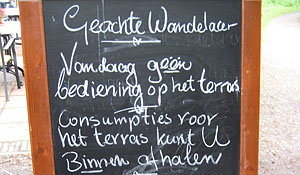 Geachte Wandelaar
Vandaag geen
bediening op het terras
Consumpties voor
het terras kunt U
Binnen afhalen